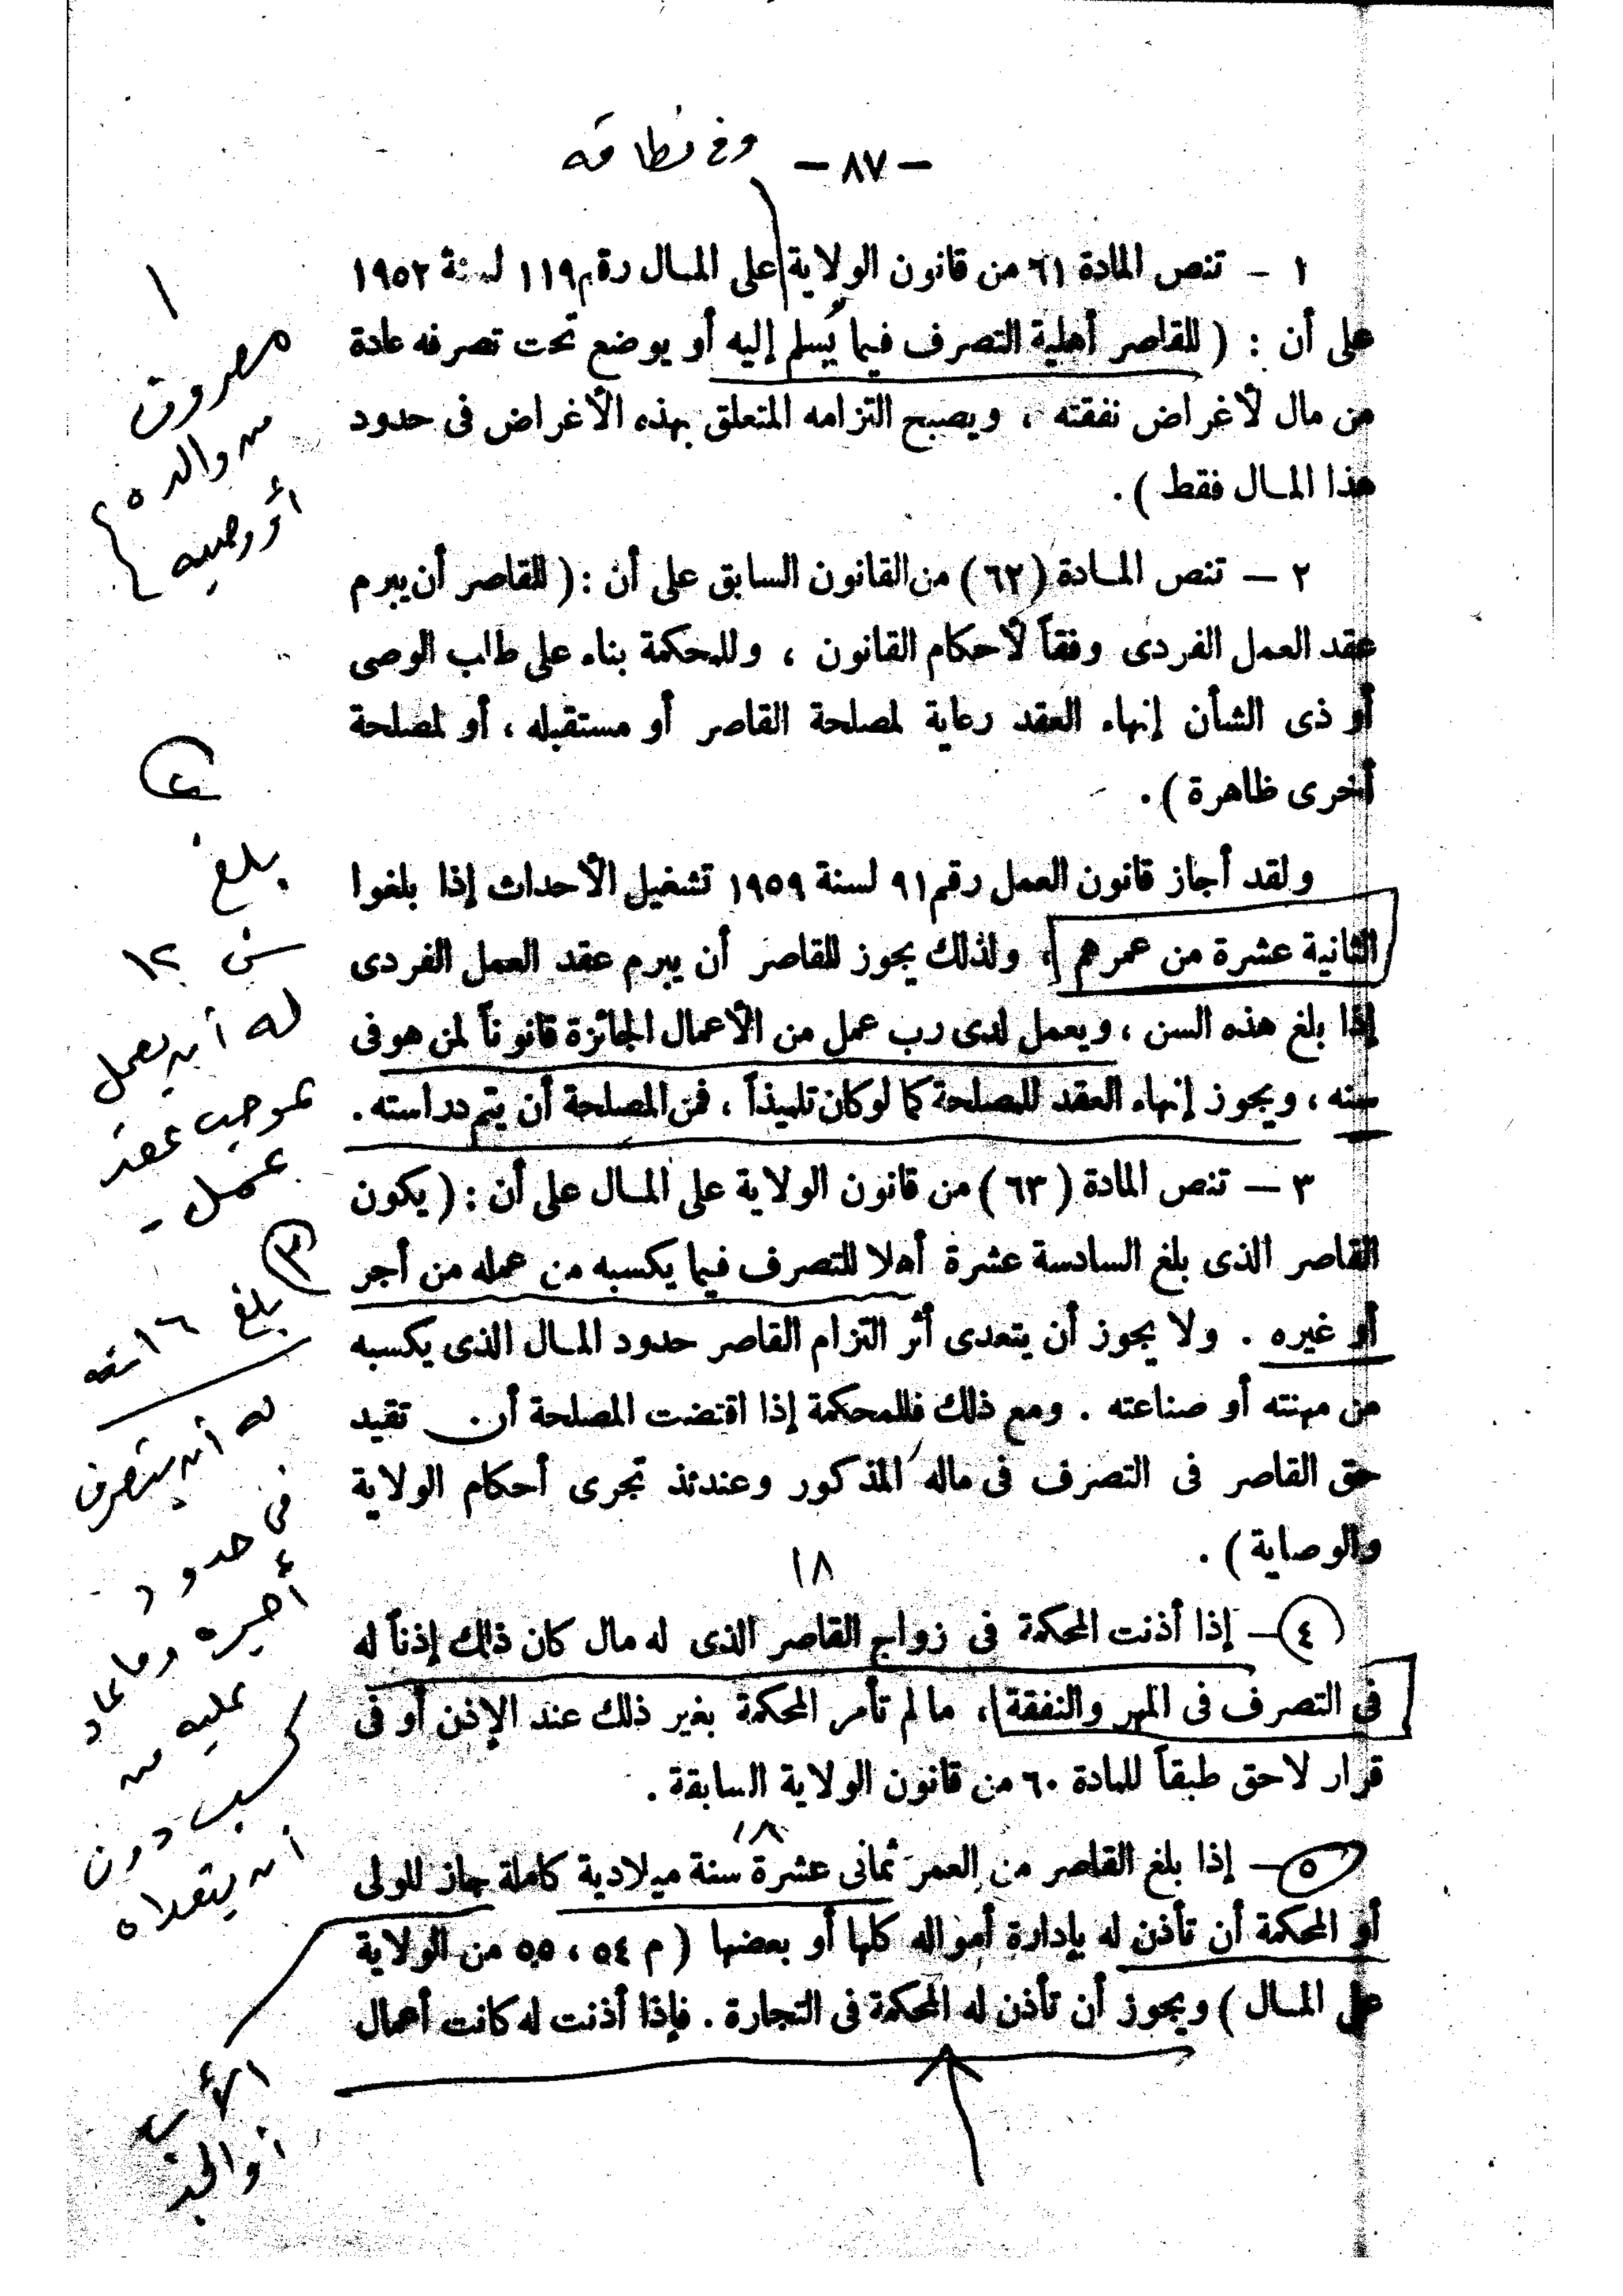 وفى نطاقه
— ٨٧ —
١ — تنص المادة ٦١ من قانون الولاية على المال رقم ١١٩ لسنة ١٩٥٢
على أن : ( للقاصر أهلية التصرف فيما يُسلم إليه أو يوضع تحت تصرفه عادة
من مال لأغراض نفقته ، ويصبح التزامه المتعلق بهذه الأغراض فى حدود
هذا المال فقط ) .
٢ — تنص المادة ( ٦٢ ) من القانون السابق على أن : ( للقاصر أن يبرم
عقد العمل الفردى وفقاً لأحكام القانون ، وللمحكمة بناء على طلب الوصى
أو ذى الشأن إنهاء العقد رعاية لمصلحة القاصر أو مستقبله ، أو لمصلحة
أخرى ظاهرة ) .
ولقد أجاز قانون العمل رقم ٩١ لسنة ١٩٥٩ تشغيل الأحداث إذا بلغوا
الثانية عشرة من عمرهم ، ولذلك يجوز للقاصر أن يبرم عقد العمل الفردى
إذا بلغ هذه السن ، ويعمل لدى رب عمل من الأعمال الجائزة قانوناً لمن هو فى
سنه ، ويجوز إنهاء العقد للمصلحة كما لو كان تلميذاً ، فمن المصلحة أن يتم دراسته .
٣ — تنص المادة ( ٦٣ ) من قانون الولاية على المال على أن : ( يكون
القاصر الذى بلغ السادسة عشرة أهلا للتصرف فيما يكسبه من عمله من أجر
أو غيره . ولا يجوز أن يتعدى أثر التزام القاصر حدود المال الذى يكسبه
من مهنته أو صناعته . ومع ذلك فللمحكمة إذا اقتضت المصلحة أن تقيد
حق القاصر فى التصرف فى ماله المذكور وعندئذ تجرى أحكام الولاية
والوصاية ) .
١٨
٤ — إذا أذنت المحكمة فى زواج القاصر الذى له مال كان ذلك إذناً له
فى التصرف فى المهر والنفقة ، ما لم تأمر المحكمة بغير ذلك عند الإذن أو فى
قرار لاحق طبقاً للمادة ٦٠ من قانون الولاية السابقة .
١٨
٥ — إذا بلغ القاصر من العمر ثمانى عشرة سنة ميلادية كاملة جاز للولى
أو المحكمة أن تأذن له بإدارة أمواله كلها أو بعضها ( م ٥٤ ، ٥٥ من الولاية
على المال ) ويجوز أن تأذن له المحكمة فى التجارة . فإذا أذنت له كانت أعمال
١
مصروف
من والده
أو وصيه
٢
بلغ
سن ١٢
له أن يعمل
بموجب عقد
عمل -
٣
بلغ ١٦ سنه
له أن يتصرف
فى حدود
أجره وما عاد
عليه من
كسب دون
أن يتعداه
الأب
أو الجد